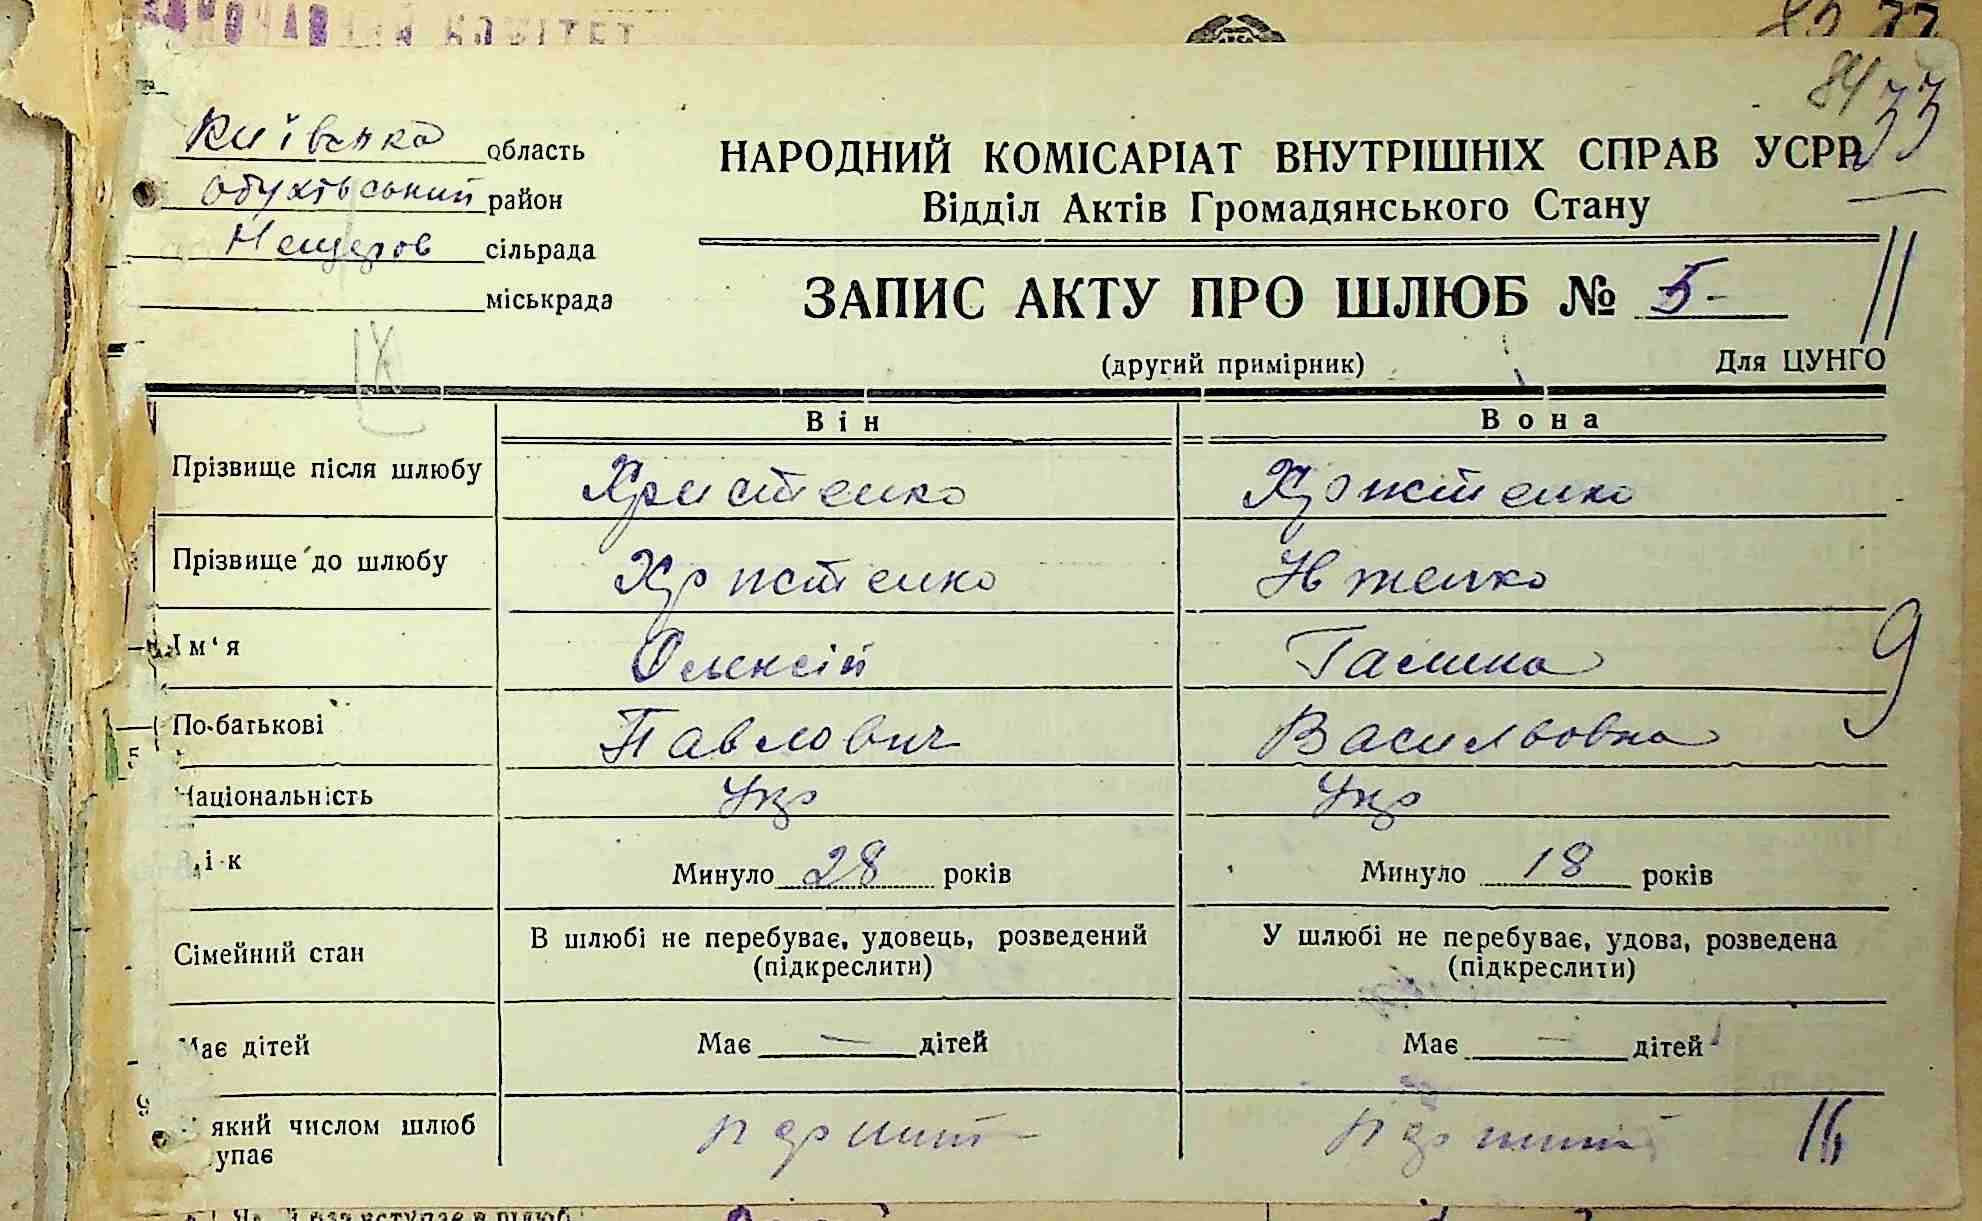 84 33
Київська область
Обухівський район
Нещеров сільрада
міськрада
НАРОДНИЙ КОМІСАРІАТ ВНУТРІШНІХ СПРАВ УСРР
Відділ Актів Громадянського Стану
ЗАПИС АКТУ ПРО ШЛЮБ № 5-
(другий примірник) Для ЦУНГО
Він Вона
Прізвище після шлюбу Христенко Христенко
Прізвище до шлюбу Христенко
Ім'я Олексій Галина
По-батькові Павлович Васильовна
Національність Укр Укр
Вік Минуло 28 років Минуло 18 років
Сімейний стан В шлюбі не перебуває, удовець, розведений (підкреслити) У шлюбі не перебуває, удова, розведена (підкреслити)
Має дітей Має — дітей Має — дітей
який числом шлюб
упає
9